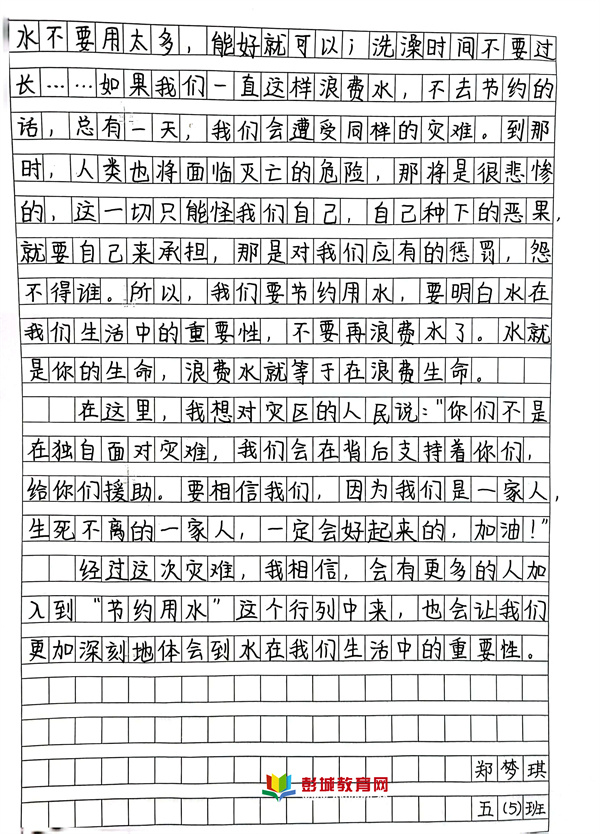 水不要用太多，能好就可以；洗澡时间不要过
长……如果我们一直这样浪费水，不去节约的
话，总有一天，我们会遭受同样的灾难。到那
时，人类也将面临灭亡的危险，那将是很悲惨
的，这一切只能怪我们自己，自己种下的恶果，
就要自己来承担，那是对我们应有的惩罚，怨
不得谁。所以，我们要节约用水，要明白水在
我们生活中的重要性，不要再浪费水了。水就
是你的生命，浪费水就等于在浪费生命。
在这里，我想对灾区的人民说："你们不是
在独自面对灾难，我们会在背后支持着你们，
给你们援助。要相信我们，因为我们是一家人，
生死不离的一家人，一定会好起来的，加油！"
经过这次灾难，我相信，会有更多的人加
入到"节约用水"这个行列中来，也会让我们
更加深刻地体会到水在我们生活中的重要性。
郑梦琪
彭城教育网
五（5）班